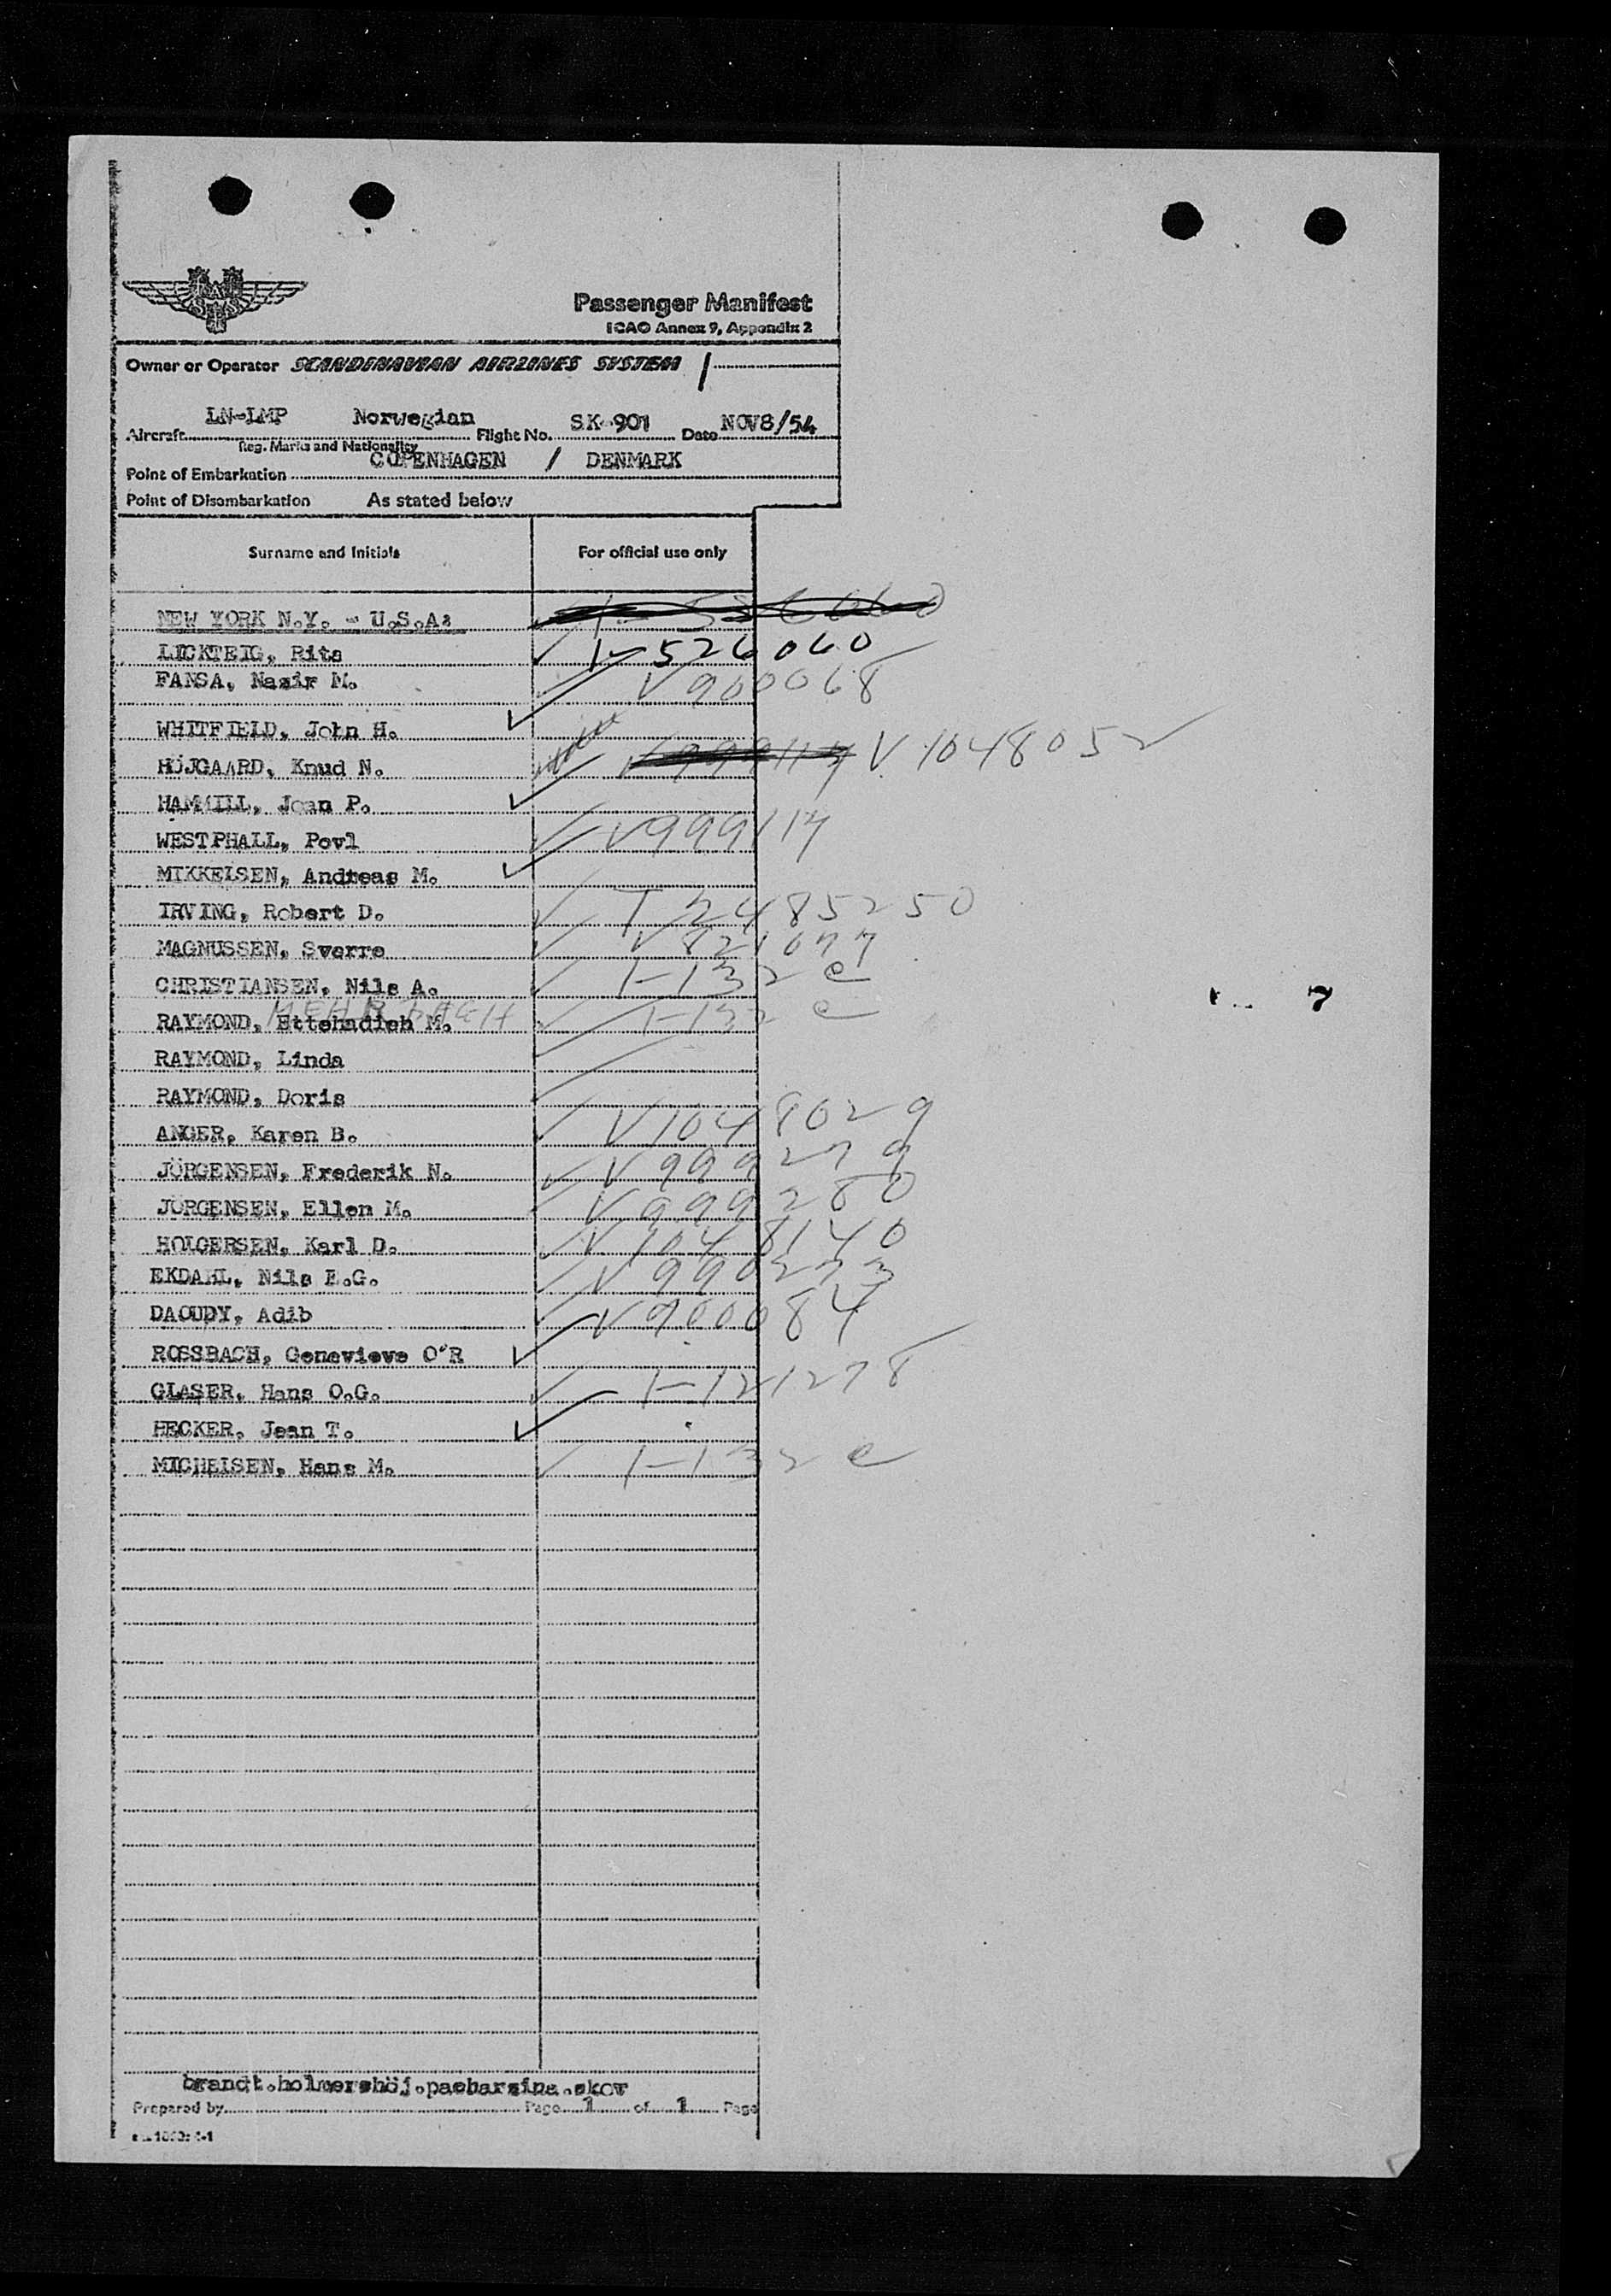 Passenger Manifest
ICAO Annex 9, Appendix 2
Owner or Operator SCANDINAVIAN AIRLINES SYSTEM /
LN-LMP Norwegian SK-901 NOV8/54
Aircraft Flight No. Date
Reg. Marks and Nationality
COPENHAGEN / DENMARK
Point of Embarkation
Point of Disembarkation As stated below
Surname and Initials For official use only
NEW YORK N.Y. - U.S.A:
LICKTEIG, Rita 1-526060
FANSA, Nazir M. V 900068
WHITFIELD, John H.
HÖJGAARD, Knud N. V 999114 V 1048052
HAMMILL, Joan P.
WESTPHALL, Povl V999114
MIKKELSEN, Andreas M.
IRVING, Robert D. T 2485250
MAGNUSSEN, Sverre V 821077
CHRISTIANSEN, Nils A. 1-132 e
RAYMOND, Ettehadieh M. 1-132 e
RAYMOND, Linda
RAYMOND, Doris
ANGER, Karen B. V 1048029
JÖRGENSEN, Frederik N. V 999279
JÖRGENSEN, Ellen M. V 999280
HOLGERSEN, Karl D. V 1048140
EKDAHL, Nils E.G. V 990273
DAOUDY, Adib V 900084
ROSSBACH, Genevieve O'R
GLASER, Hans O.G. 1-121278
HECKER, Jean T.
MICHELSEN, Hans M. 1-132 e
7
brandt.holmershöj.pacbarsina.skov
Prepared by Page 1 of 1 Page